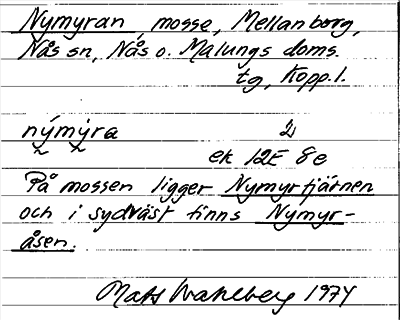 Nymyran, mosse, Mellanborg,
Nås sn, Nås o. Malungs doms.
tg, Kopp. l.
nýmỳra 2
ek 12E 8e
På mossen ligger Nymyrtjärnen
och i sydväst finns Nymyr-
åsen.
Mats Wahlberg 1974